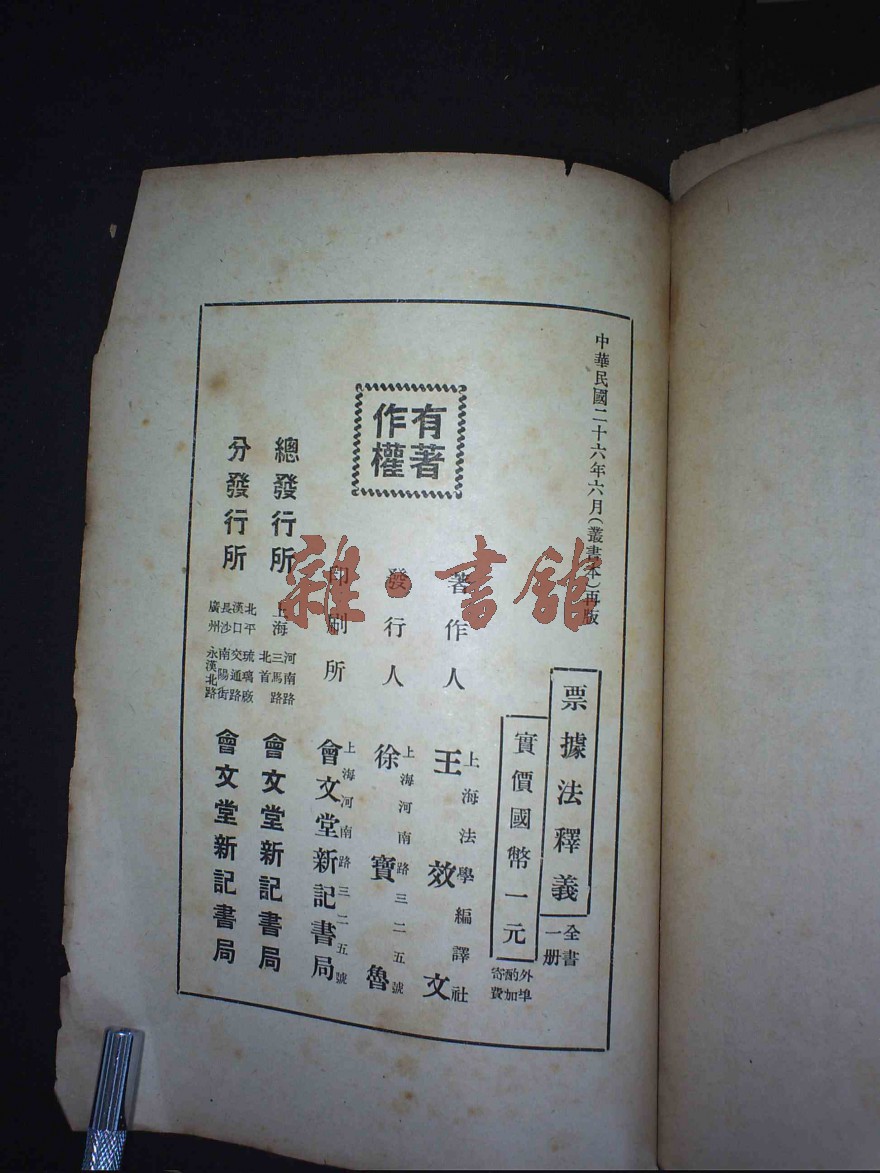 中華民國二十六年六月(叢書本)再版
票據法釋義
全書
一册
實價國幣一元
外埠
酌加
寄費
有著
作權
著作人
上海法學編譯社
王效文
發行人
上海河南路三二五號
徐寶魯
印刷所
上海河南路三二五號
會文堂新記書局
總發行所
上海
河南路
三馬路
北首
會文堂新記書局
分發行所
北平 琉璃廠
漢口 交通路
長沙 南陽街
廣州 永漢北路
會文堂新記書局
雜·書館